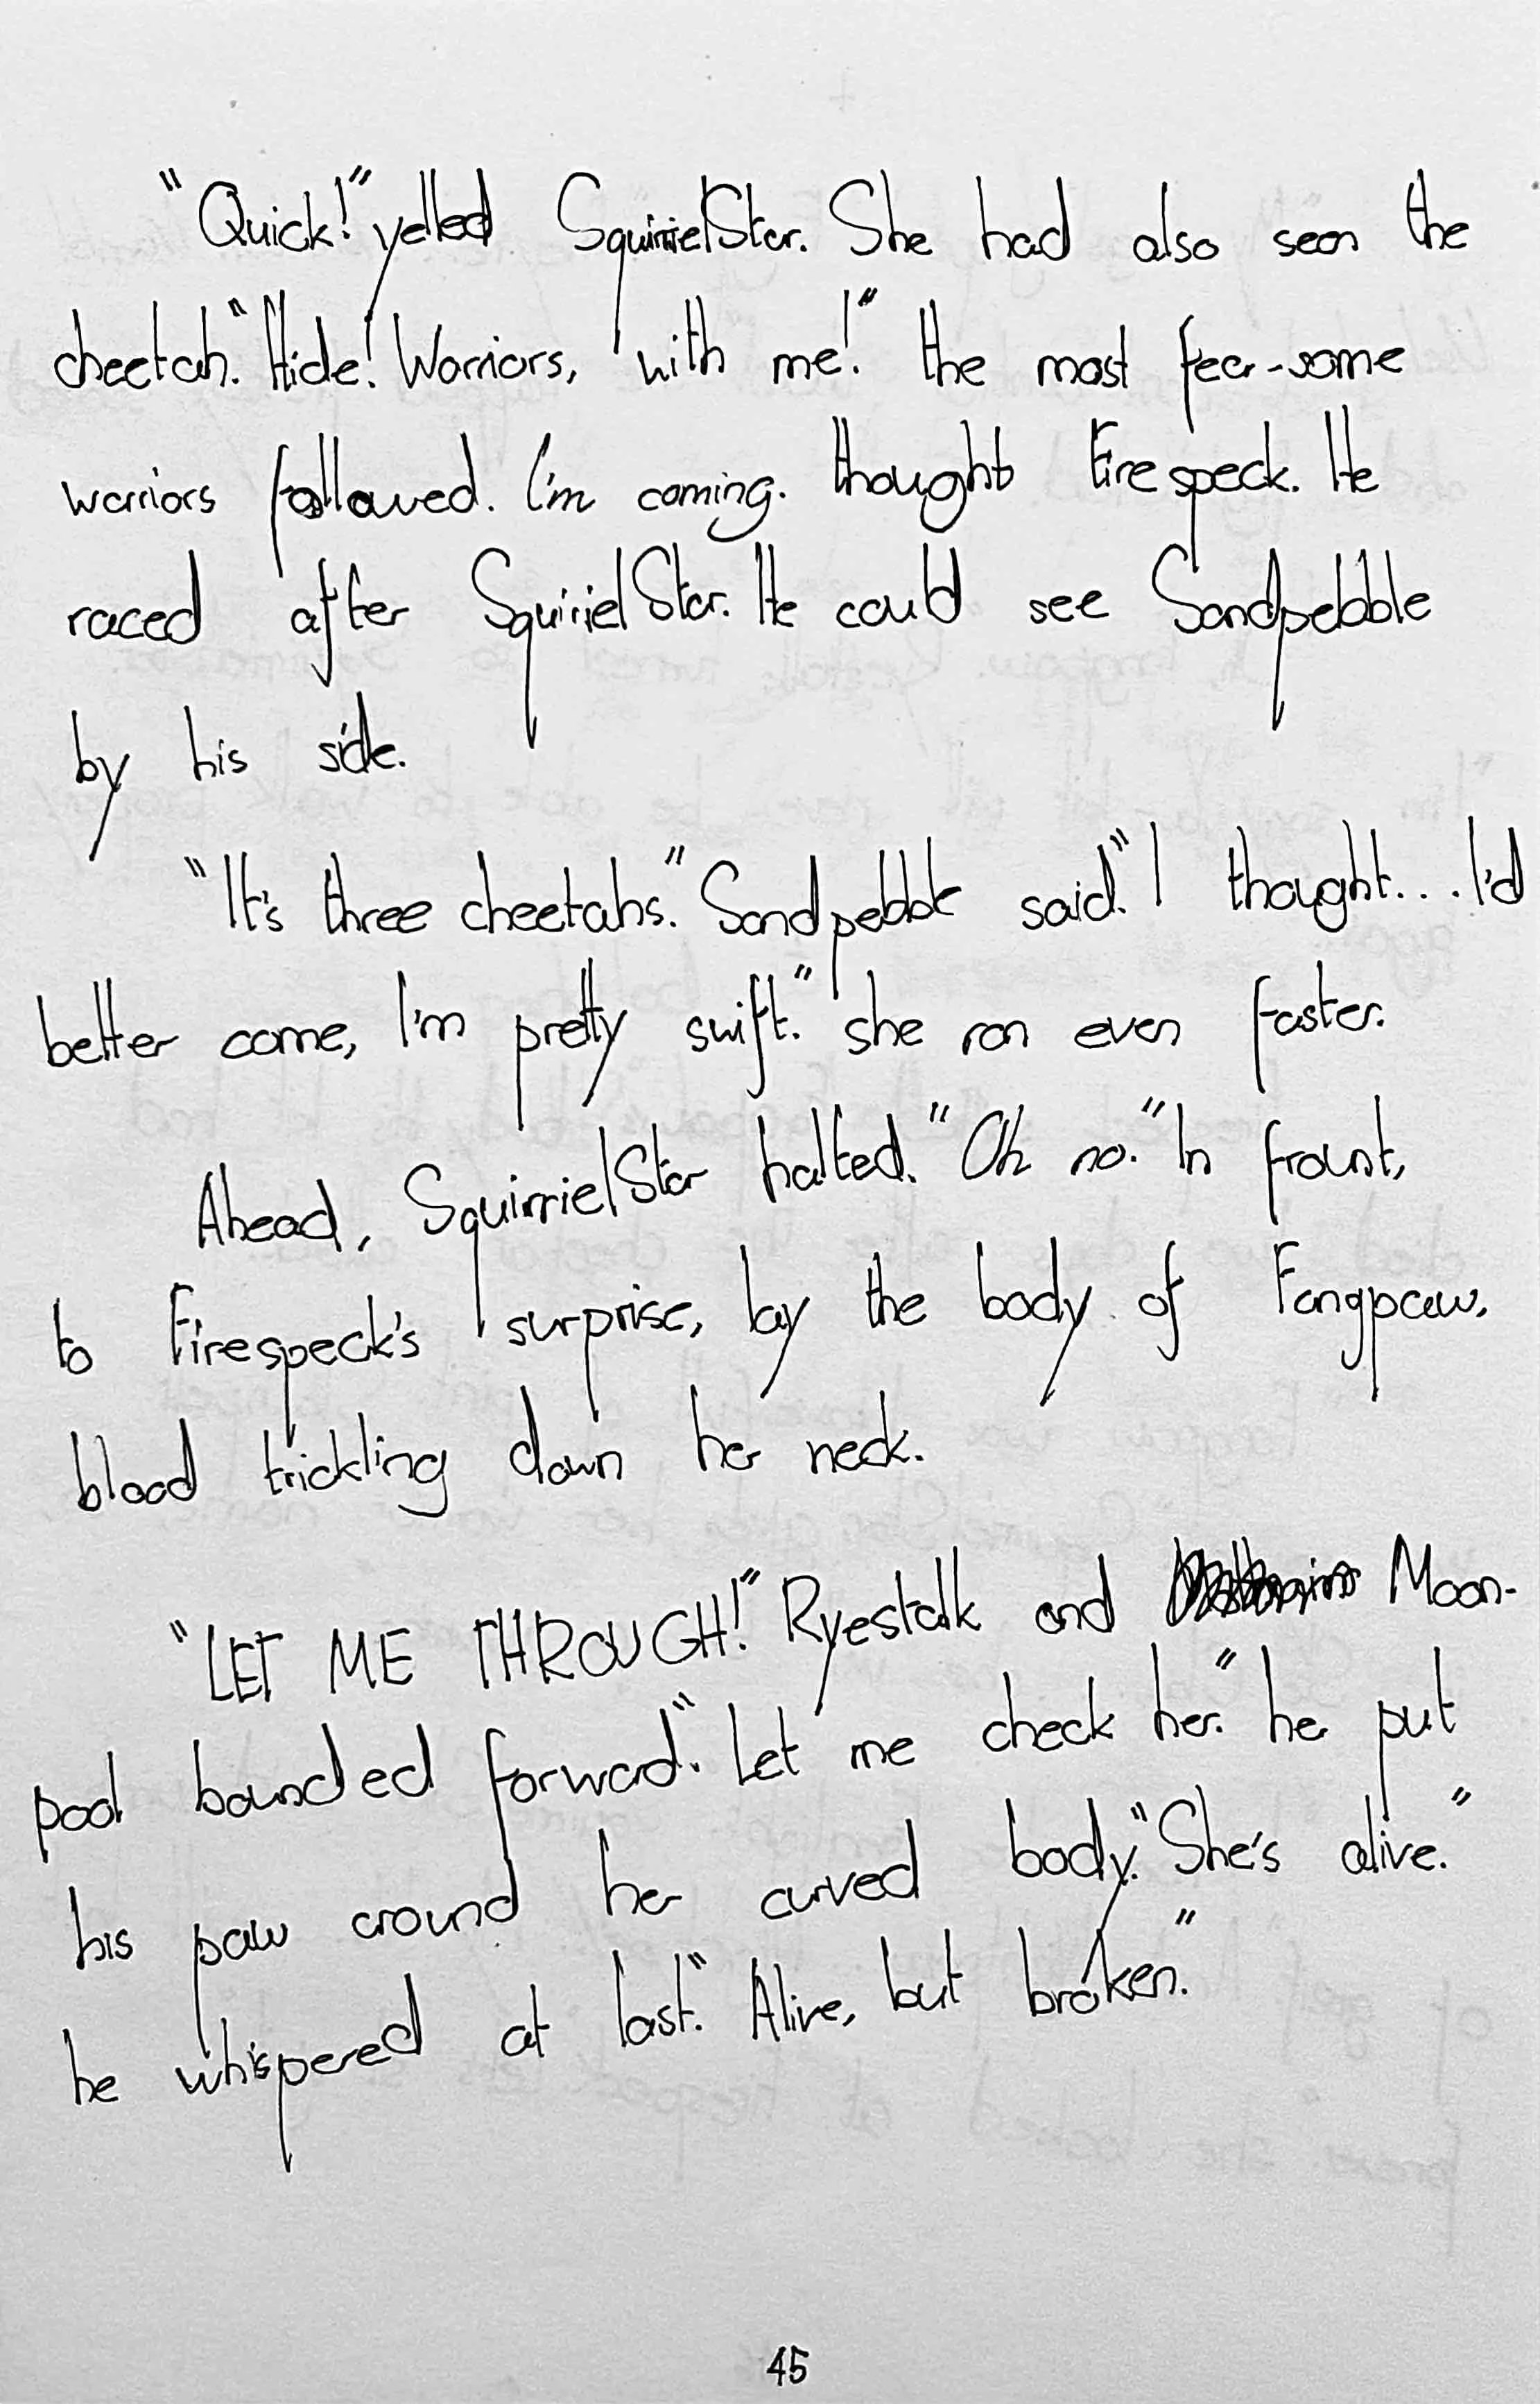 "Quick!" yelled SquirrielStar. She had also seen the
cheetah. "Hide! Warriors, with me!" the most fear-some
warriors followed. I'm coming. thought Firespeck. He
raced after SquirielStar. He could see Sandpebble
by his side.
"It's three cheetahs." Sandpebble said. "I thought... I'd
better come, I'm pretty swift." she ran even faster.
Ahead, SquirrielStar halted. "Oh no." In frount,
to Firespeck's surprise, lay the body of Fangpaw,
blood trickling down her neck.
"LET ME THROUGH!" Ryestalk and Moon-
pool bounded forward. "Let me check her." he put
his paw around her curved body. "She's alive."
he whispered at last. "Alive, but broken."
45